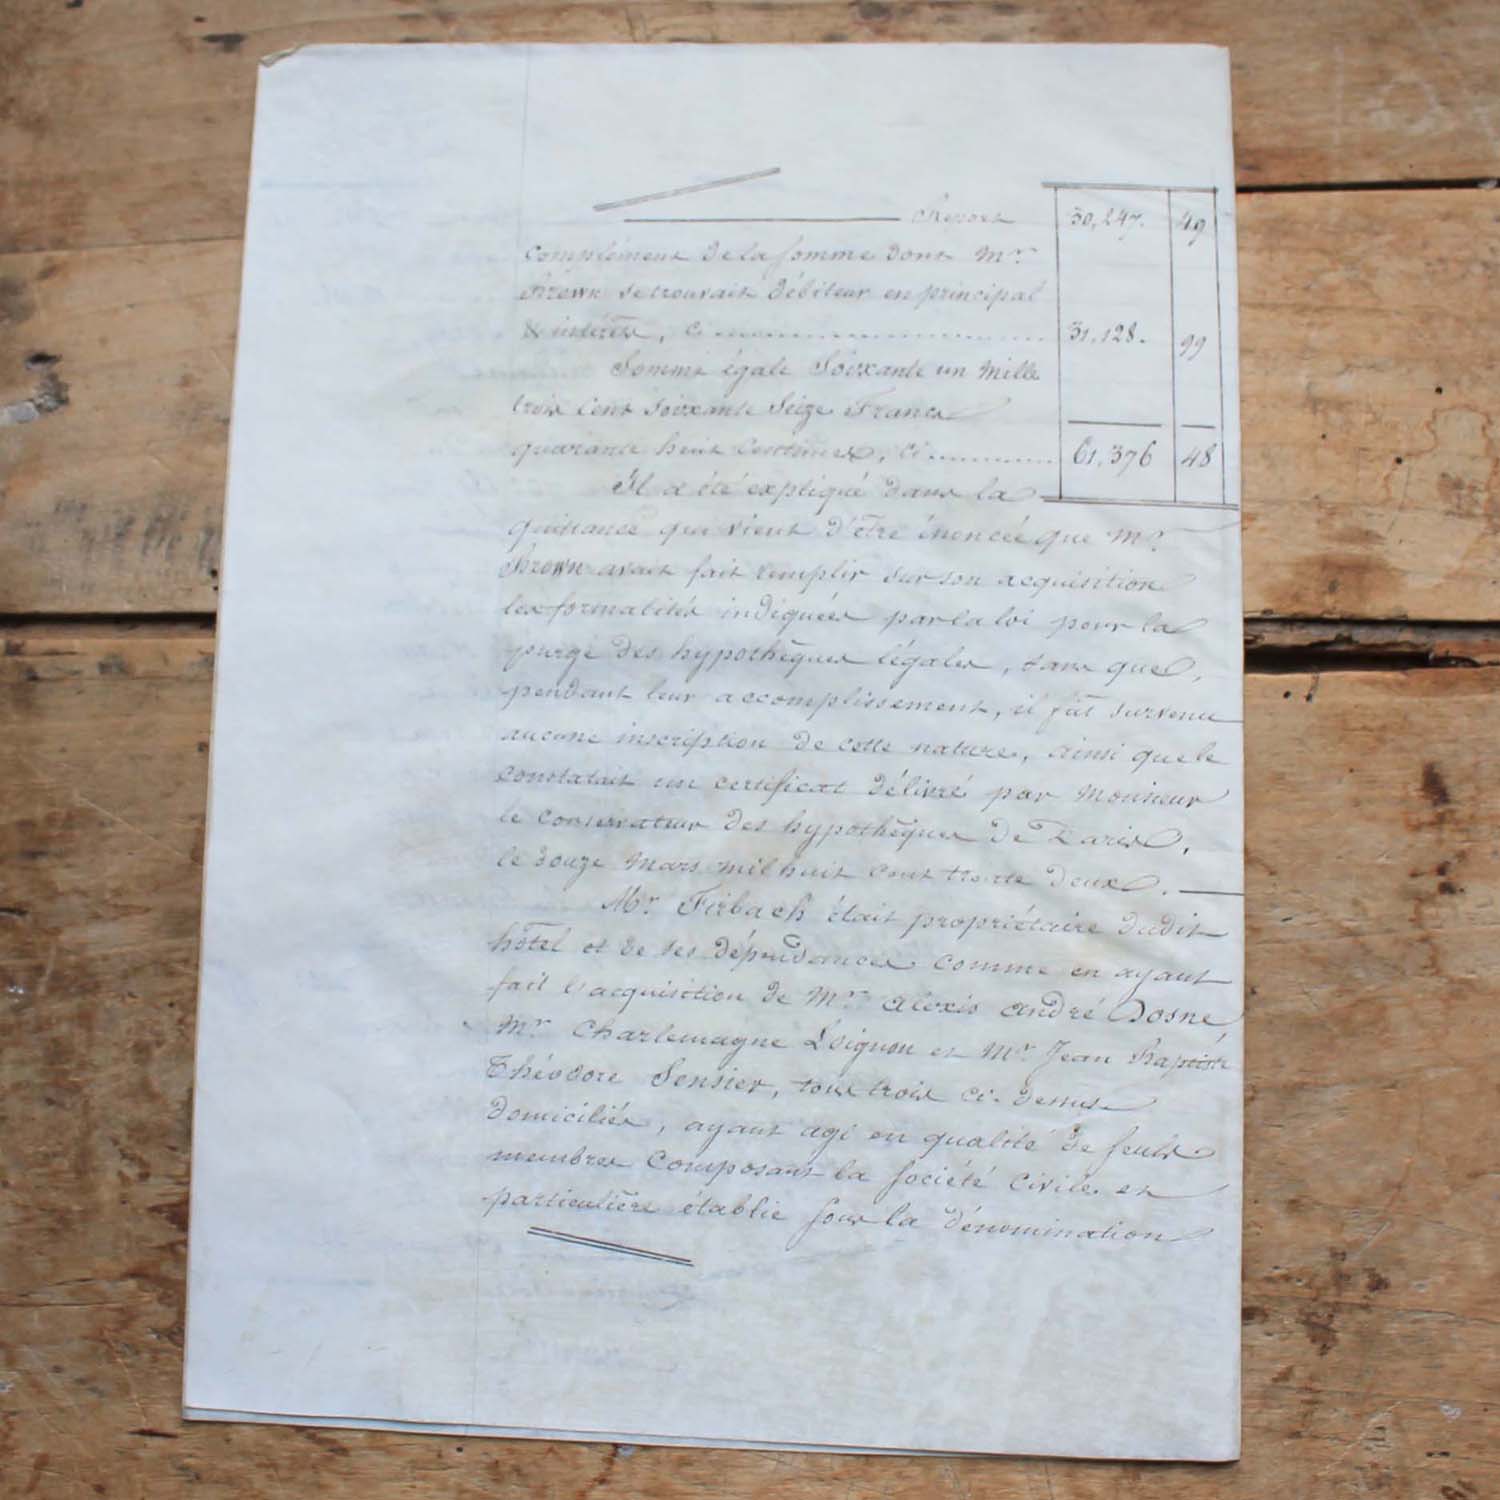 Report 30,247. 49
complément de la somme dont Mr.
Brown se trouvait débiteur en principal
& intérêts, ci 31,128. 99
Somme égale Soixante un Mille
trois Cent Soixante Seize Francs
quarante huit Centimes, ci 61,376 48
Il a été expliqué dans la
quittance qui vient d'être énoncée que Mr.
Brown avait fait remplir sur son acquisition
les formalités indiquées par la loi pour la
purge des hypothèques légales, sans que,
pendant leur accomplissement, il fût survenu
aucune inscription de cette nature, ainsi que le
constatait un certificat délivré par Monsieur
le Conservateur des hypothèques de Paris,
le douze Mars mil huit cent trente deux.
Mr. Firbach était propriétaire dudit
hôtel et de ses dépendances comme en ayant
fait l'acquisition de Mr. Alexis André Dosne,
Mr. Charlemagne Loignon et Mr. Jean Baptiste
Théodore Sensier, tous trois ci-dessus
domiciliés, ayant agi en qualité de seuls
membres composant la société civile et
particulière établie sous la dénomination